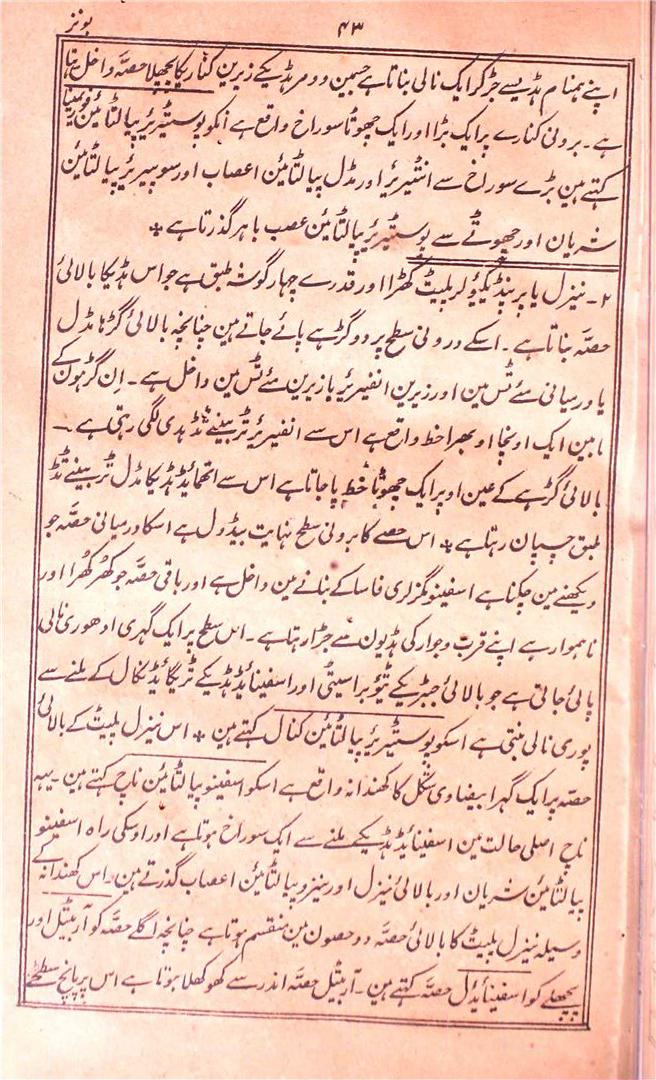 ۴۳ بونز
اپنے ہمنام ہڈیسے جڑکر ایک نالی بناتا ہے جسمین وومر ہڈیکے زیرین کناریکا پچھلا حصّہ داخل ہتا
ہے۔ برونی کنارے پر ایک بڑا اور ایک چھوٹا سوراخ واقع ہے انکو پوسٹیریئر پیالٹائین فورمینا
کہتے ہین بڑے سوراخ سے انٹیریئر اور مڈل پیالٹائین اعصاب اور سوپیریئر پیالٹائین
شریان اور چھوٹے سے پوسٹیریئر پیالٹائین عصب باہر گذرتا ہے *
۲۔ نیزل یا پرپنڈیکیولر پلیٹ کھڑا اور قدرے چہار گوشہ طبق ہے جو اس ہڈیکا بالائی
حصّہ بناتا ہے۔ اسکے درونی سطح پر دو گڑہے پائے جاتے ہین چنانچہ بالائی گڑہا مڈل
یا درمیانی مئے ٹس مین اور زیرین انفیریئر یا زیرین مئے ٹس مین داخل ہے۔ اِن گڑہون کے
مابین ایک اونچا اوبھرا خط واقع ہے اس سے انفیریئر ٹربینے ٹڈ ہڈی لگی رہتی ہے۔
بالائی گڑہے کے عین اوپر ایک چھوٹا خط پا جاتا ہے اس سے اتھمائڈ ہڈیکا مڈل ٹربینے ٹڈ
طبق چسپان رہتا ہے * اس حصے کا برونی سطح نہایت بیڈول ہے اسکا درمیانی حصّہ جو
دیکھنے مین چکنا ہے اسفینومگزلری فاسا کے بنانے مین داخل ہے اور باقی حصّہ جو کھُرکھُرا اور
ناہموار ہے اپنے قرب و جوار کی ہڈیون سے جڑا رہتا ہے۔ اس سطح پر ایک گہری ادھوری نالی
پائی جاتی ہے جو بالائی جبڑیکے ٹیوبراسیٹی اور اسفینائیڈ ہڈیکے ٹریگائیڈ نکال کے ملنے سے
پوری نالی بنتی ہے اسکو پوسٹیریئر پیالٹائین کنال کہتے ہین * اس نیزل پلیٹ کے بالائی
حصّہ پر ایک گہرا بیضاوی شکل کا کھندانہ واقع ہے اسکو اسفینو پیالٹائین ناچ کہتے ہین۔ یہہ
ناچ اصلی حالت مین اسفینائیڈ ہڈیکے ملنے سے ایک سوراخ ہوتا ہے اور اوسکی راہ اسفینو
پیالٹائین شریان اور بالائی نیزل اور نیزوپیالٹائین اعصاب گذرتے ہین۔ اس کھندانہ کے
وسیلہ نیزل پلیٹ کا بالائی حصّہ دو حصون مین منقسم ہوتا ہے چنانچہ اگلے حصّہ کو آربیٹل اور
پچھلے کو اسفینائیڈل حصّہ کہتے ہین۔ آربیٹل حصّہ اندر سے کھوکھلا ہوتا ہے اس پر پانچ سطحے